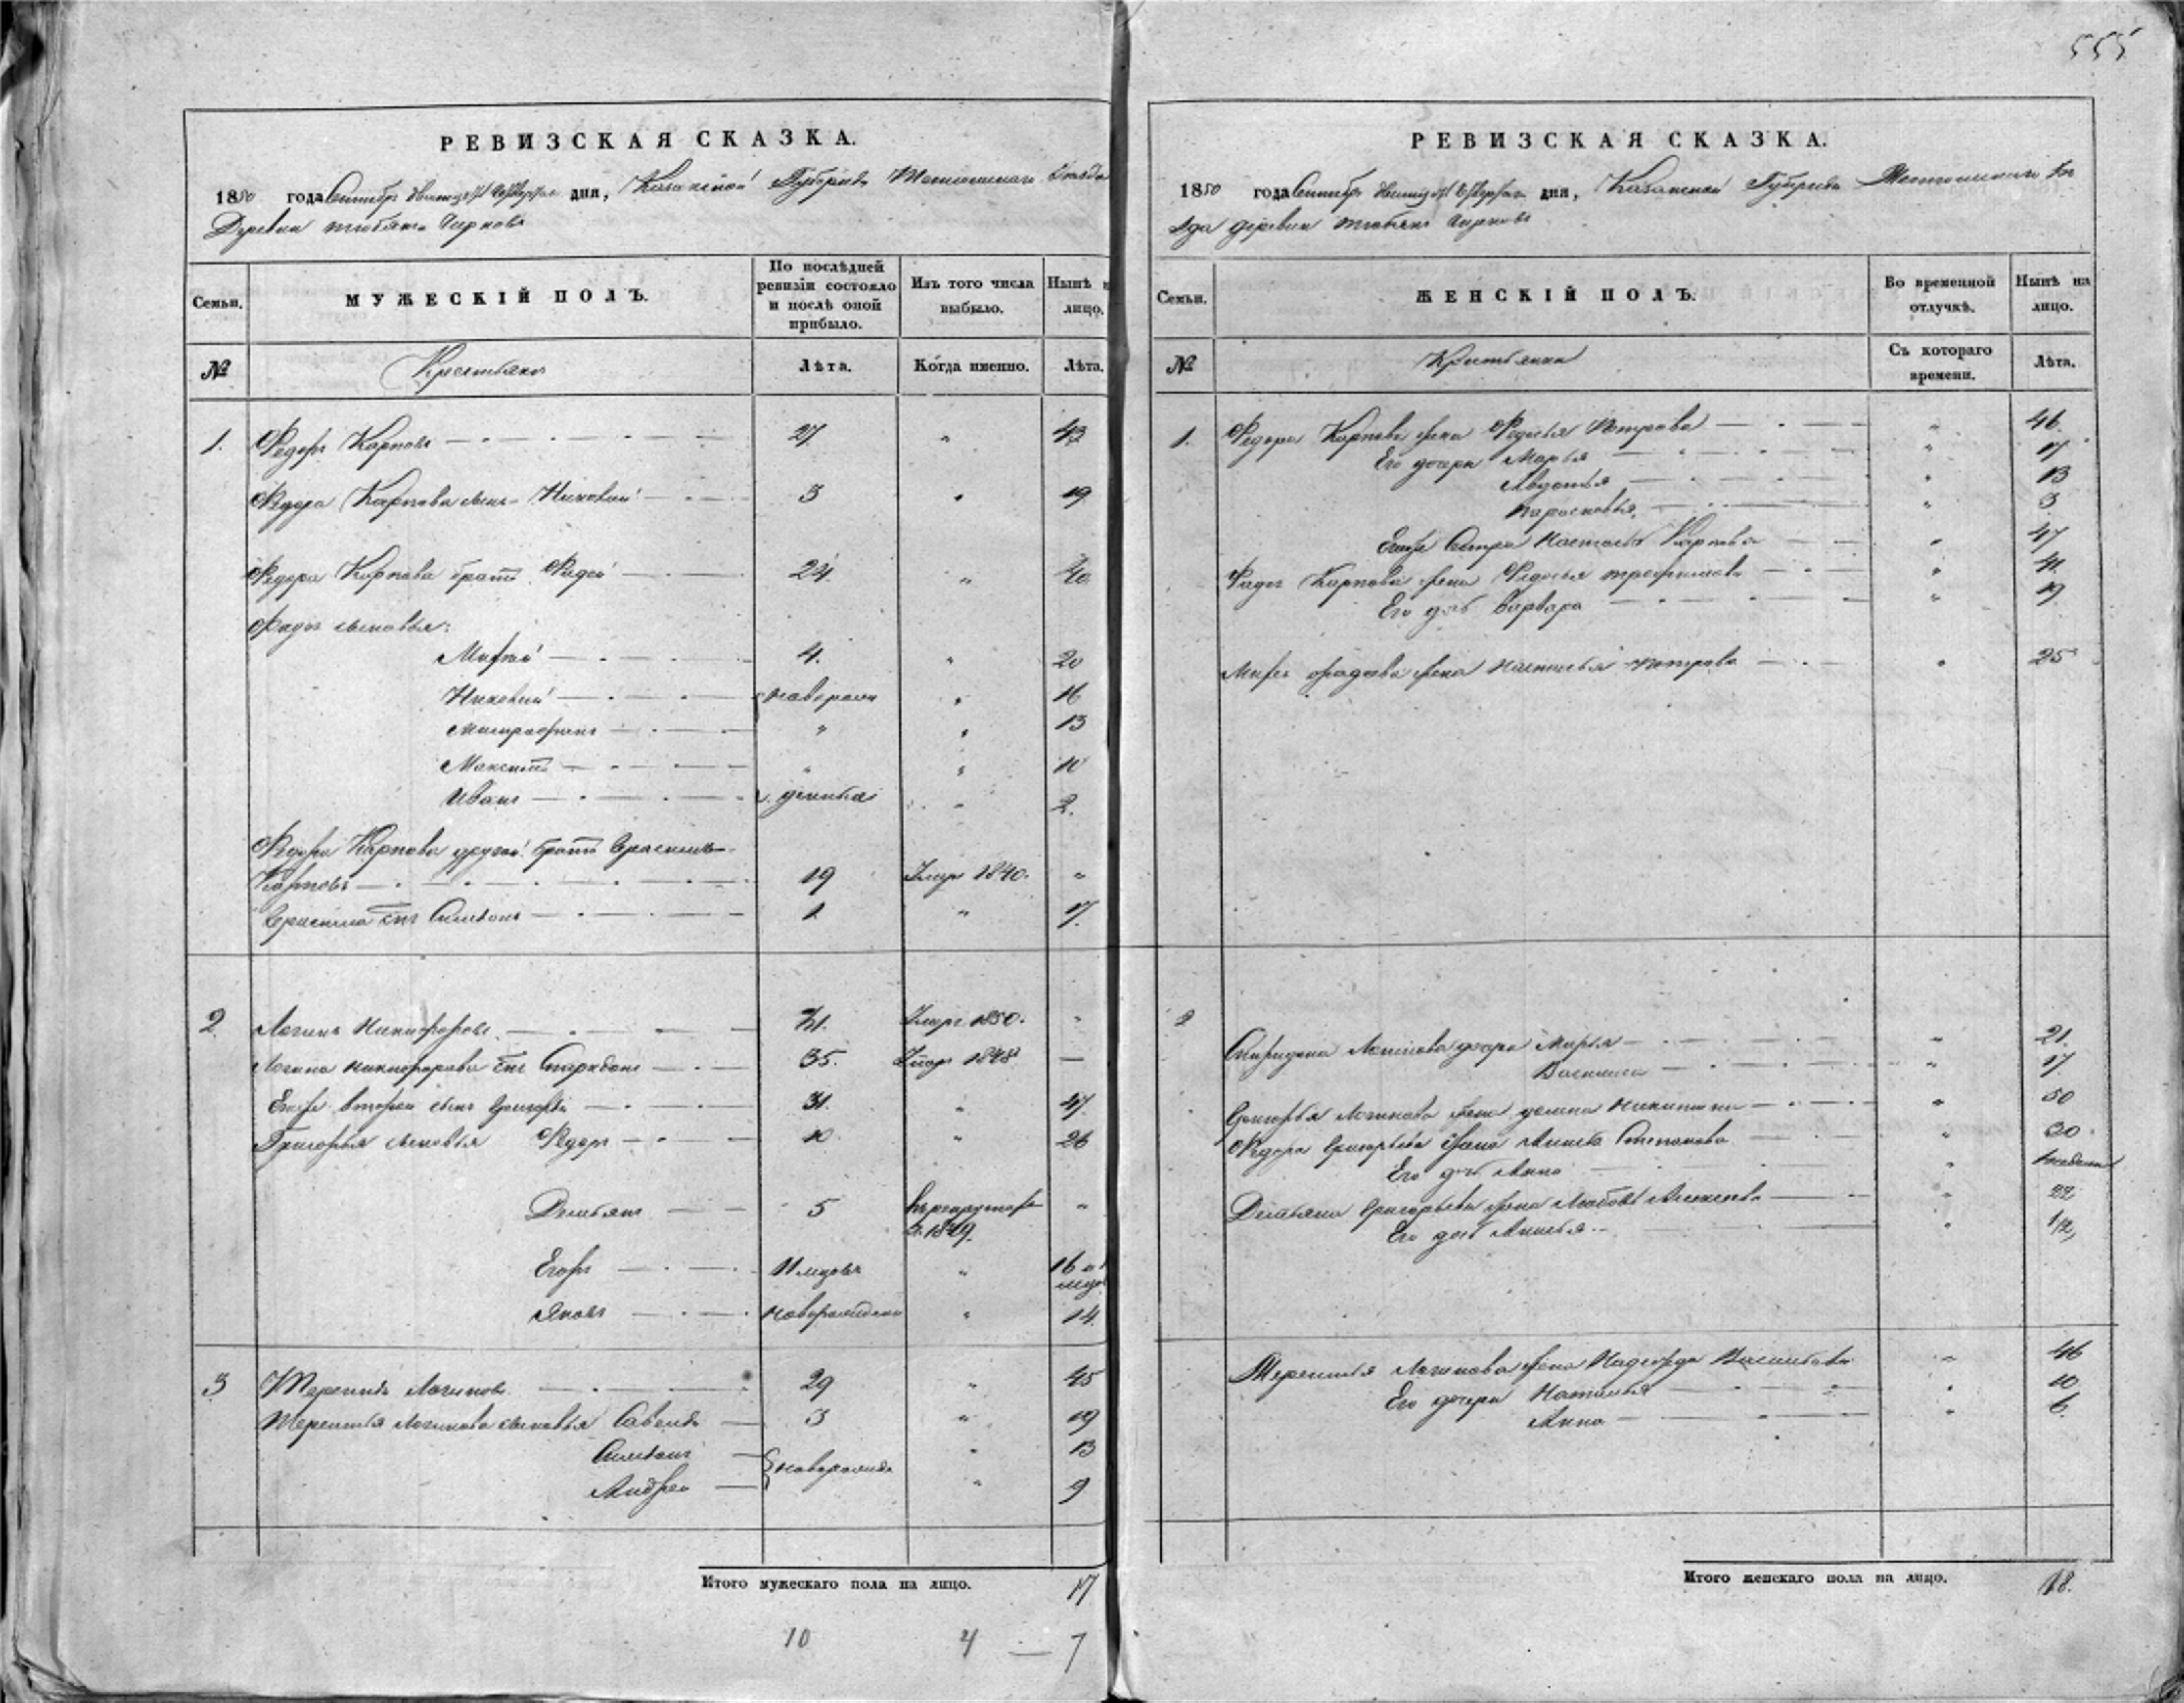 555
РЕВИЗСКАЯ СКАЗКА.
1850 года Сентября дня, Казанской Губерніи Тетюшскаго Уѣзда
Деревни Чирковъ
Семьи.
МУЖЕСКІЙ ПОЛЪ.
По послѣдней ревизіи состояло и послѣ оной прибыло.
Изъ того числа выбыло.
Нынѣ на лицо.
№
Крестьяне
Лѣта.
Когда именно.
Лѣта.
1. Федоръ Карповъ 27 " 43
Федора Карпова сынъ 3 " 19
Федора Карпова братъ Фадей 24 " 40
Фадея сыновья:
4. " 20
" 16
Митрофанъ " " 13
Максимъ " " 10
Иванъ " 2.
Федора Карпова другой братъ
Карповъ 19 Умеръ 1840. "
сынъ Симеонъ 1 " 17.
2. Логинъ Никифоровъ 71. Умеръ 1850. "
Логина Никифорова сынъ Спиридонъ 35. Умеръ 1848 —
Егоже второй сынъ Григорій 31. " 47.
Григорья сыновья Федоръ 10 " 26
Демьянъ 5 в рекруты
в 1849. "
Егоръ "
Яковъ новорожденъ " 14.
3 Терентій Логиновъ 29 " 45
Терентья Логинова сыновья Савелій 3 " 19
Симеонъ " 13
Андрей новорожден " 9
Итого мужескаго пола на лицо. 17
10 4 — 7
РЕВИЗСКАЯ СКАЗКА.
1850 года Сентября дня, Казанской Губерніи Тетюшскаго Уѣ
зда деревни Чирковъ
Семьи.
ЖЕНСКІЙ ПОЛЪ.
Во временной отлучкѣ.
Нынѣ на лицо.
№
Крестьянки
Съ котораго времени.
Лѣта.
1. Федора Карпова жена Федосья Петрова " 46.
Его дочери Марья " 17
Авдотья " 13
Парасковья " 3
Егоже Сестра Настасья Карпова " 47
Фадея Карпова жена Федосья Трофимова " 41.
Его дочь Варвара " 19
Фадеева жена Настасья Петрова " 25
2 Спиридона Логинова дочери Марья " 21.
Василиса " 17
Григорья Логинова жена Никитина " 50
Федора Григорьева жена Анисья Степанова " 30.
Его дочь Анна "
Демьяна Григорьева жена Любовь Алексеева " 22
Его дочь Анисья " 1/2
Терентья Логинова жена Надежда Васильева " 46
Его дочери Наталья " 10
Анна " 6.
Итого женскаго пола на лицо. 18.